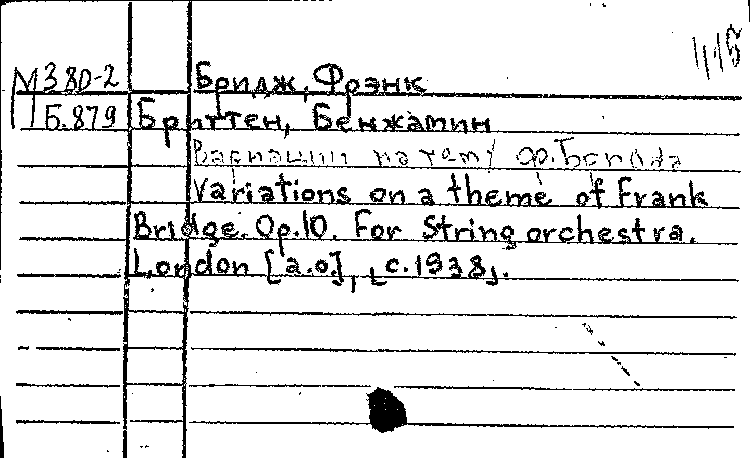 М380-2 Бридж, Фрэнк
Б.879 Бриттен, Бенжамин
Вариации на тему Ф. Бриджа
Variations on a theme of Frank
Bridge. Op.10. For String orchestra.
London [a.o.], [c.1938].